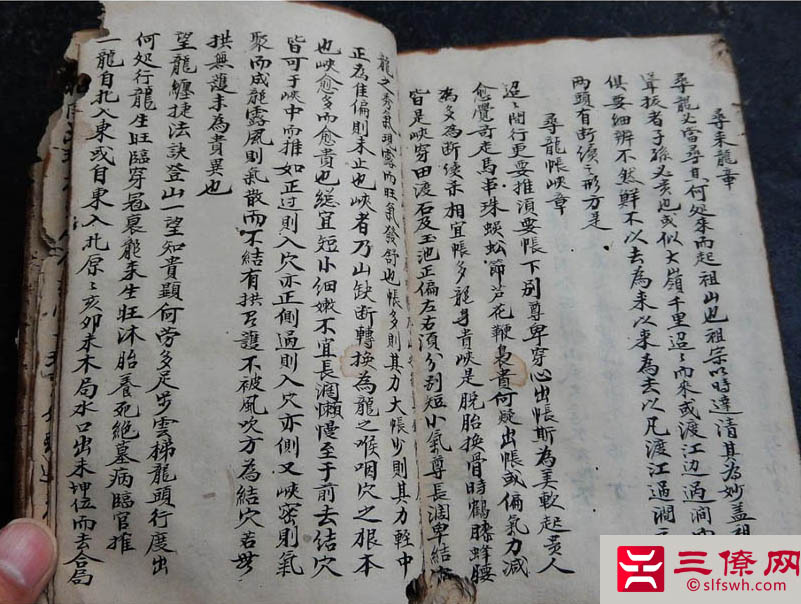 尋来龍章
尋龍必當尋自何処来而起祖山也祖宗以時達清其為妙盖祖
聳拔者子孫必贵也或似大嶺千里迢〻而來或渡江边過澗而
俱要細辨不然鮮不以去為来以来為去以凡渡江過澗
两頭有断续之形方是
尋龍帳峽章
迢〻開行更要推須要帳下别尊卑穿心出帳斯為美軟起贵人
愈覺奇走馬串珠蜈蚣節芦花鞭裊贵何疑出帳或偏氣力减
為多為断续来相宜帳多龍身貴峽是脱胎換骨時鶴膝蜂腰
皆是峽穿田渡石及玉池正偏左右須分别短小氣尊長濶卑結
龍之秀氣現露而旺氣發舒也帳多則其力大帳少則其力輕中
正為佳偏則未止也峽者乃山缺断轉換為龍之喉咽穴之根本
也峽愈多而愈貴也縂宜短小細嫩不宜長濶懶慢至于前去结穴
皆可于峽中而推如正过則入穴亦正側過則入穴亦側又峽密則氣
聚而成龍露風則氣散而不結有拱有護不被風吹方為結穴若無
拱無護未為貴異也
望龍纏捷法訣登山一望知貴顯何劳多足步雲梯龍頭行度出
何処行龍生旺臨穿冠裏龍来生旺沐胎養死絶墓病臨官推
一龍自北入東或自東入北原〻亥卯未木局水口出未坤位而去合局
三僚网
slfswh.com